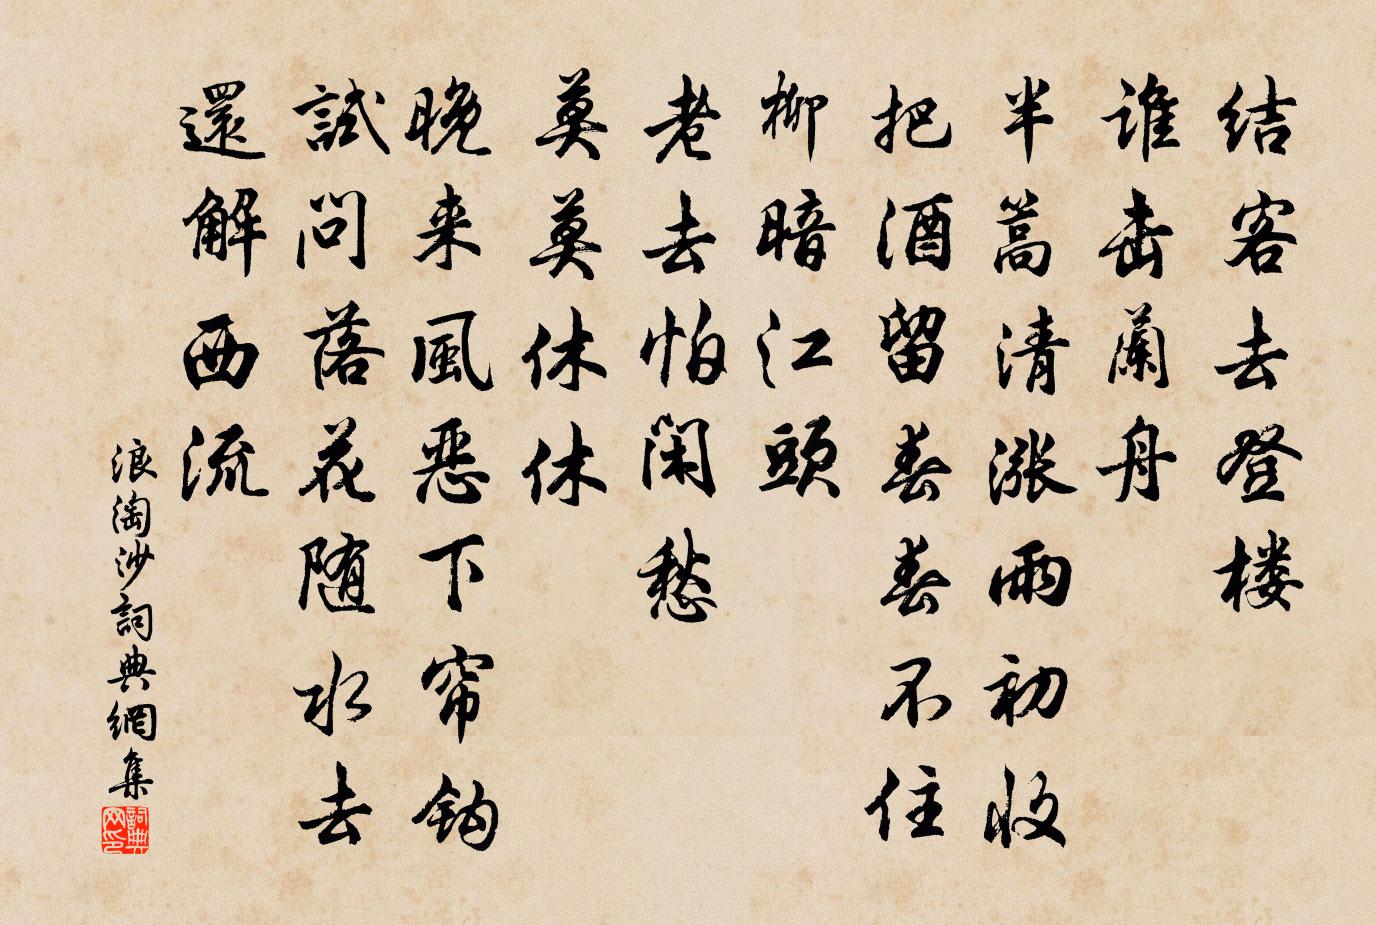 结客去登楼
谁击蘭舟
半篙清涨雨初收
把酒留春春不住
柳暗江頭
老去怕闲愁
莫莫休休
晚来風恶下帘钩
試問落花随水去
還解西流
浪淘沙詞典網集
詞典网印